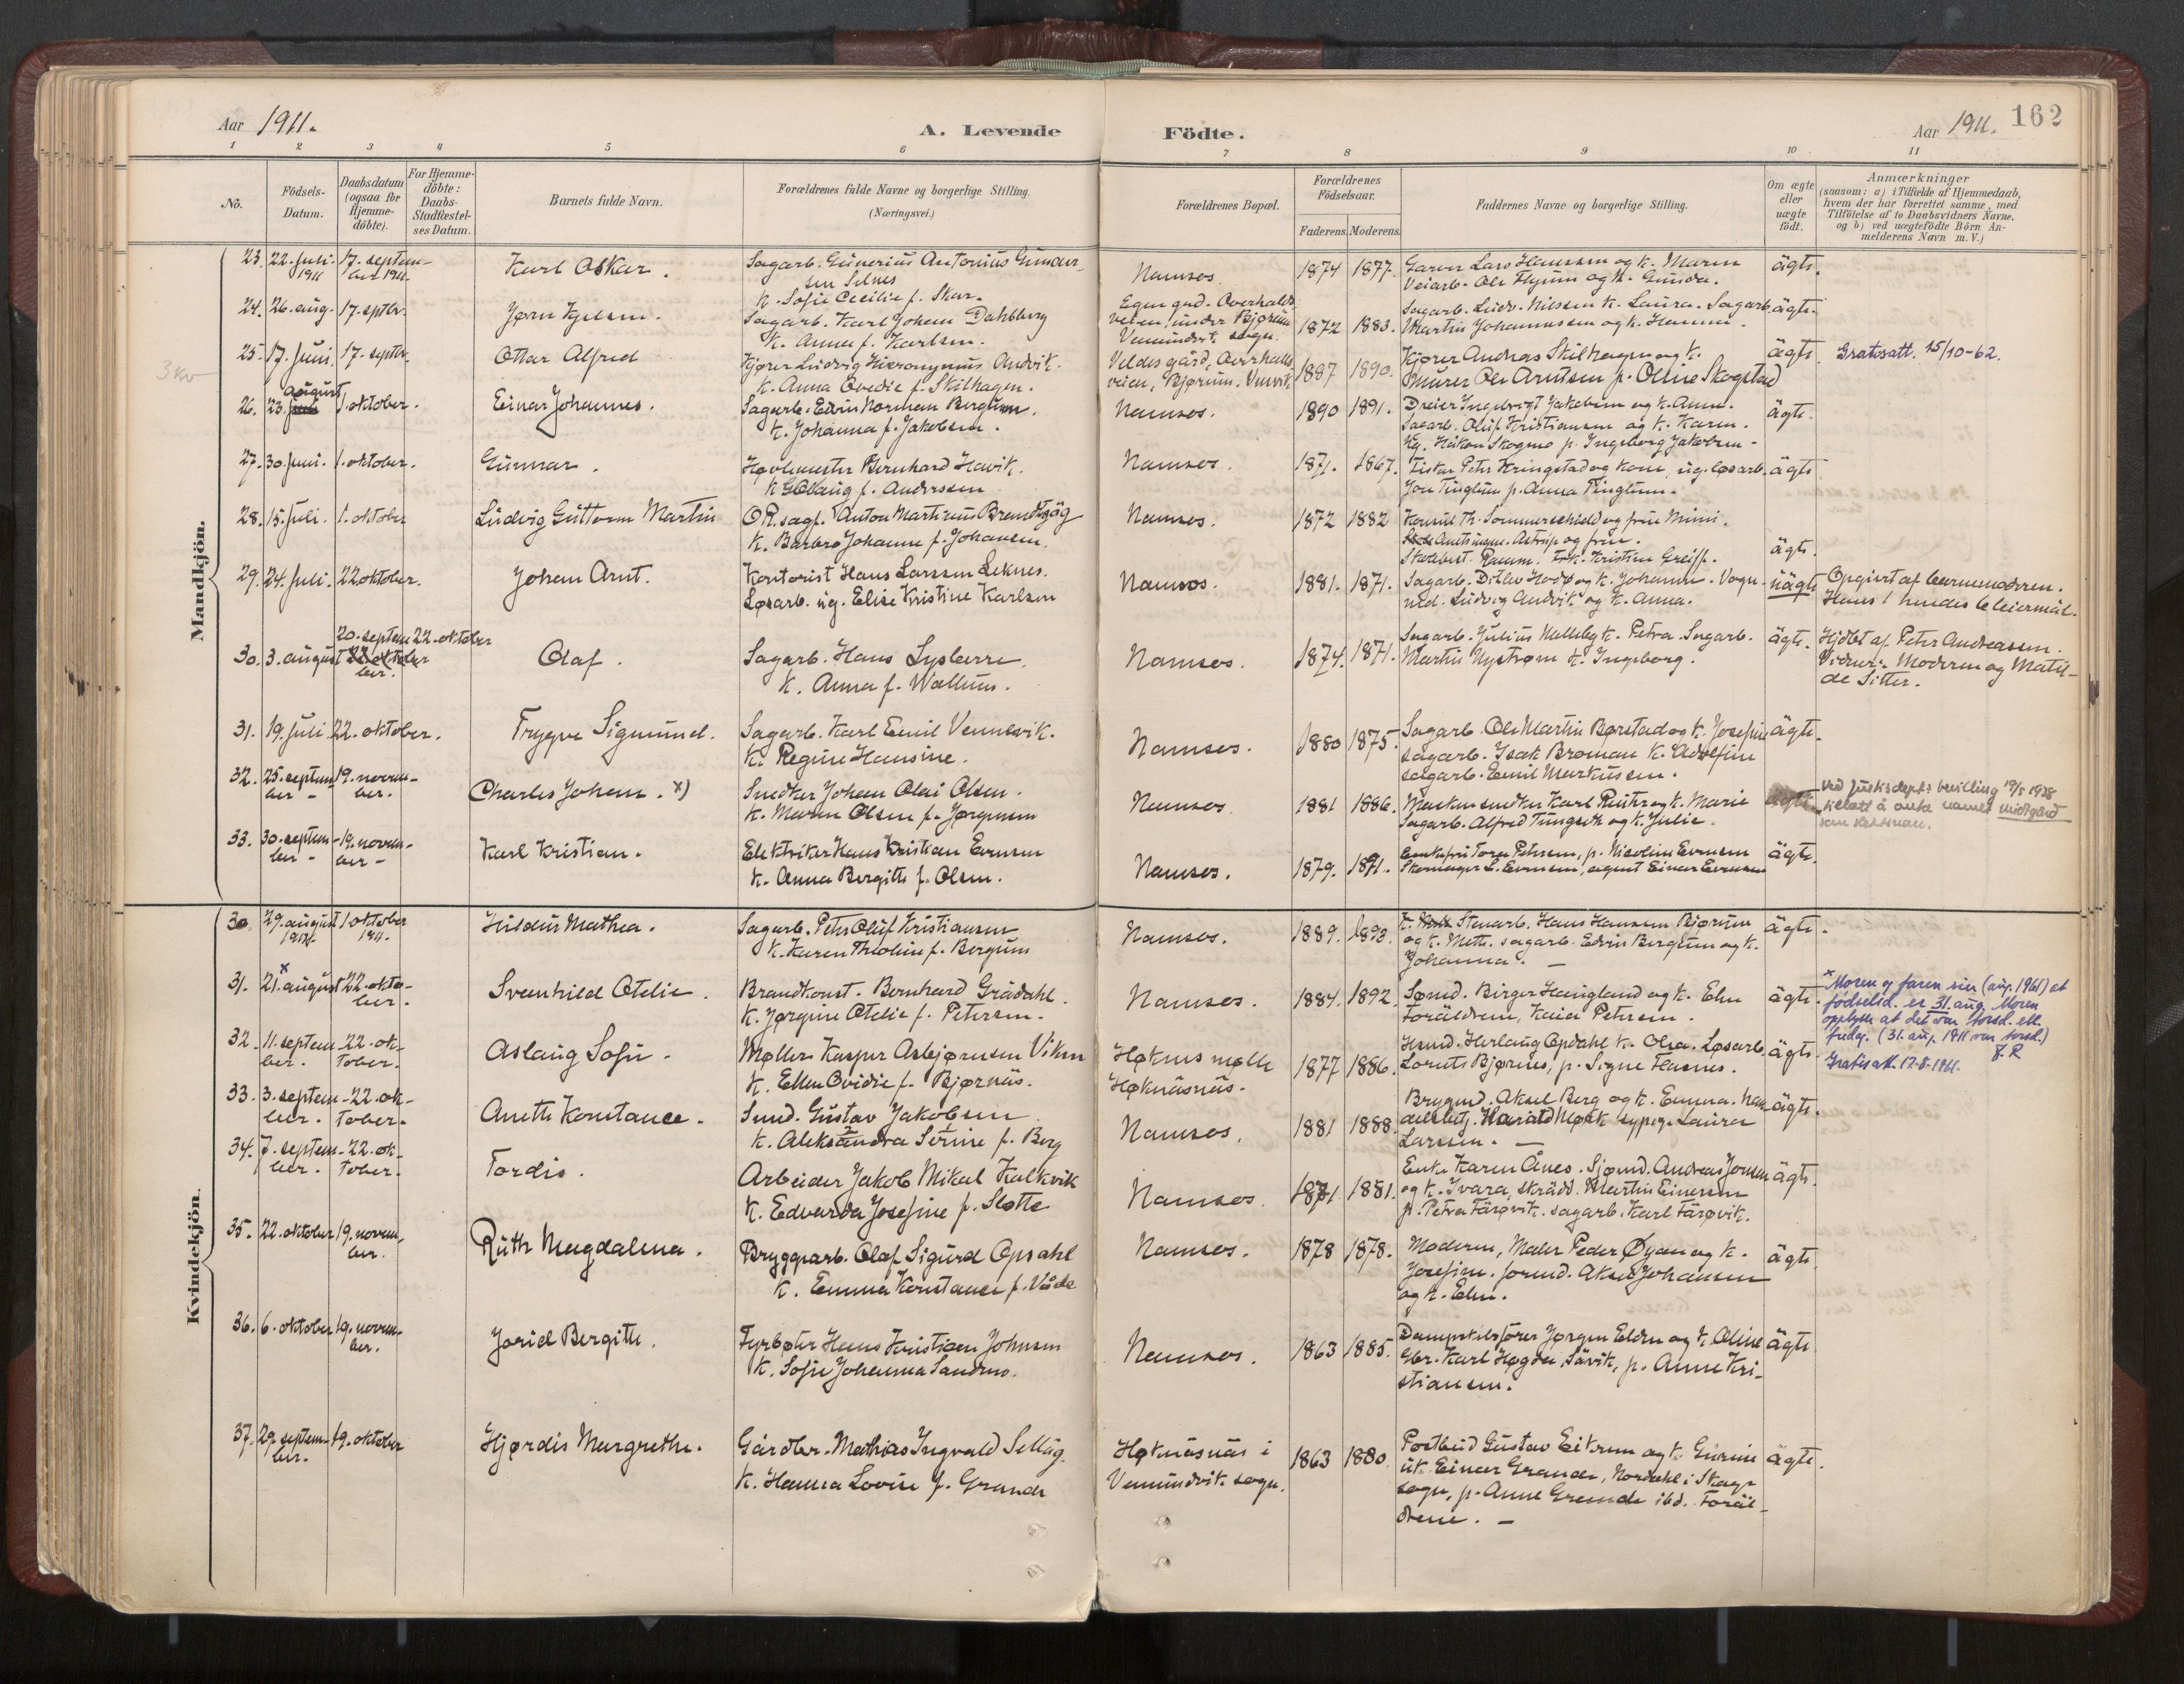 Aar 1911.
A. Levende Födte.
Aar 1911. 162
1 2 3 4 5 6 7 8 9 10 11
No.
Födsels-
Datum.
Daabsdatum
(ogsaa for
Hjemme-
döbte).
For Hjemme-
döbte:
Daabs-
Stadfæstel-
ses Datum.
Barnets fulde Navn.
Forældrenes fulde Navne og borgerlige Stilling.
(Næringsvei.)
Forældrenes Bopæl.
Forældrenes
Födselsaar.
Faderens. Moderens.
Faddernes Navne og borgerlige Stilling.
Om ægte
eller
uægte
født.
Anmærkninger
(saasom: a) i Tilfælde af Hjemmedaab,
hvem der har forrettet samme, med
Tilföielse af to Daabsvidners Navne.
og b) ved uægtefödte Börn An-
melderens Navn m. V.)
Mandkjön.
23. 22. juli 1911 17. september 1911 Karl Oskar.
Sagarb. Gunerius Antonius Gunder-
sen Selnes
K. Sofie Cecilie f. Skar.
Namsos 1874 1877.
Garver Lars Hanssen og K. Maren
Veiarb. Ole Flyum og K. Gunda.
ägte.
24. 26. aug. 17. septbr. Jørn
Sagarb. Karl Johan Dahlberg
K. Anna f. Karlsen.
Egen grd. Overhalds
veien, under Bjørum
Vemundvik sogn.
1872 1883.
Sagarb. Ludv. Nilssen K. Laura. Sagarb.
Martin Johannessen og K. Hanna.
ägte.
3 kv
25. 17. juni. 17. septbr. Ottar Alfred
Kjører Ludvig Hieronymus Andvik.
K. Anna Ovedie f. Skilhagen.
Veldes gård, Overhalls
veien, Bjørum. Vemvik
1887 1890.
Kjører Andreas Skilhagen og K.
Murer Ole Arntsen p. Oline Skogstad
ägte. Gratisatt. 15/10-62.
26. 23. august 1. oktober. Einar Johannes.
Sagarb. Edvin Norman Bergum.
K. Johanna f. Jakobsen.
Namsos. 1890 1891.
Dreier Ingebrigt Jakobsen og K. Anna.
Sagarb. Oluf Kristiansen og K. Karen.
Ug. Håkon Skogmo p. Ingeborg Jakobsen.
ägte.
27. 30. juni. 1. oktober. Gunnar.
Høvlemester Bernhard Havik.
K. Olaug f. Anderssen
Namsos. 1871. 1867.
Fisker Peter Kringstad og kone, ug. løsarb.
Jon Tinglum p. Anna Tinglum.
ägte
28. 15. juli. 1. oktober Ludvig Guttorm Martin
O.R. sagf. Anton Martinus Bremtsäg
K. Barbro Johanne f. Johansen.
Namsos. 1872 1882
Konsul Th. Sommerschield og frue Mimi.
Amtsingen. Astrup og frue.
Stadsbest. Ramm. Frk. Kristine Greiff.
ägte.
29. 24. juli. 22 oktober. Johan Arnt.
Kontorist Hans Larssen Leknes.
Løsarb. ug. Elise Kristine Karlsen
Namsos. 1881. 1871.
Sagarb. Ditlev Hodø og K. Johanna. Vogn-
md. Ludvig Andvik og K. Anna.
uägte
Opgivet af barnemoderen.
Hans 1 hendes 6 leiermål.
30. 3. august 20. septem-
ber. 22. oktober Olaf.
Sagarb. Hans Lysberre.
K. Anna f. Wallum.
Namsos. 1874. 1871.
Sagarb. Julius Melleby K. Petra. Sagarb.
Martin Nystrøm K. Ingeborg.
ägte. Hjdbt af Peter Andreassen.
Vidner: Moderen og Matil-
de Sitter.
31. 19. juli 22. oktober. Trygve Sigmund.
Sagarb. Karl Emil Vennevik.
K. Regine Hansine.
Namsos. 1880 1875.
Sagarb. Ole Martin Børstad og K. Josefine
sagarb. Isak Broman K. Adolfine
sagarb. Emil Markussen.
ägte.
32. 25. septem-
ber 19. novem-
ber. Charles Johan. x)
Snedker Johan Olai Olsen.
K. Maren Olsen f. Jørgensen
Namsos. 1881 1886.
Maskinsnedker Karl Reitr og K. Marie
Sagarb. Alfred Tungseth og K. Julie.
ägte. Ved Justisdepts bevilling 19/5 1928
tillatt å anta navnet Midtgård
som slektsnavn.
33. 30. septem-
ber 19. novem-
ber Karl Kristian.
Elektriker Hans Kristian Evensen
K. Anna Bergitte f. Olsen.
Namsos. 1879. 1891.
Enkefru Tora Petersen, p. Nicoline Evensen
Skomager L. Evensen, agent Einar Evensen
ägte.
Kvindekjön.
30. 29. august 1911. 1 oktober 1911. Huldur Mathea.
Sagarb. Peter Oluf Kristiansen
K. Karen Theoline f. Bergum
Namsos. 1889. 1893.
Stenarb. Hans Hanssen Bjørum
og K. Meth. sagarb. Edvin Bergum og K.
Johanna.
ägte.
31. 21. x august 22. okto-
ber. Svanhild Otelie.
Brandkonst. Bernhard Grådahl.
K. Jørgine Otelie f. Petersen.
Namsos. 1884. 1892.
Sømd. Birger Haugland og K. Elen
Foräldrene, Kaia Petersen.
ägte.
x Moren og faren sier (aug. 1961) at
fødselsd. er 31. aug. Moren
opplyste at det var torsd. ell.
fredag. (31. aug. 1911 var torsd.)
F. R
Gratisatt. 17-8-1961.
32. 11. septem-
ber. 22. ok-
tober. Aslaug Sofie.
Møller Kasper Asbjørnsen Viken
K. Ellen Ovidie f. Bjørnäs.
Høknes mølle
Høknäsnäs.
1877 1886.
Hsmd. Herlaug Opdahl K. Olea. Løsarb.
Lorents Bjørnes, p. Signe Flasnes.
ägte.
33. 3. septem-
ber. 22. ok-
tober. Anette Konstance.
Smed. Gustav Jakobsen
K. Aleksandra Serine f. Berg
Namsos. 1881 1888.
Brygmd. Aksel Berg og K. Emma. han-
delsbetj. Harald Mørk sypige Laura
Larssen.
ägte.
34. 7. septem-
ber. 22. ok-
tober. Tordis.
Arbeider Jakob Mikal Kalkvik
K. Edvarda Josefine f. Slotte
Namsos. 1871 1881.
Enke Karen Ånes. Sjømd. Andreas Jonsen
og K. Ivara, skrädd. Martin Einersen
p. Petra Färøvik. sagarb. Karl Färøvik.
ägte.
35. 22. oktober 19. novem-
ber. Ruth Magdalena.
Bryggarb. Olaf Sigurd Opsahl
K. Emma Konstance f. Våde
Namsos. 1878 1878.
Moderen, Maler Peder Øyan og K.
Josefine. formd. Aksel Johansen
og K. Elen.
ägte.
36. 6. oktober 19. novem-
ber. Jorid Bergitte.
Fyrbøter Hans Kristian Johnsen
K. Sofie Johanna Sandmo.
Namsos. 1863 1885.
Dampskibsfører Jørgen Elden og K. Oline
Gbr. Karl Høgden, Sävik, p. Anne Kri-
stiansen.
ägte
37. 29. septem-
ber. 19. oktober Hjørdis Margrethe.
Gårdbr. Mathias Ingvald Selläg.
K. Hanna Lovise f. Grande
Høknäsnäs i
Vemundvik. sogn.
1863 1880.
Postbud Gustav Eitrem og K. Gurine
uk. Einar Grande, Nordahl i Skage
sogn, p. Anne Grande ibd. Foräl-
drene.
ägte.